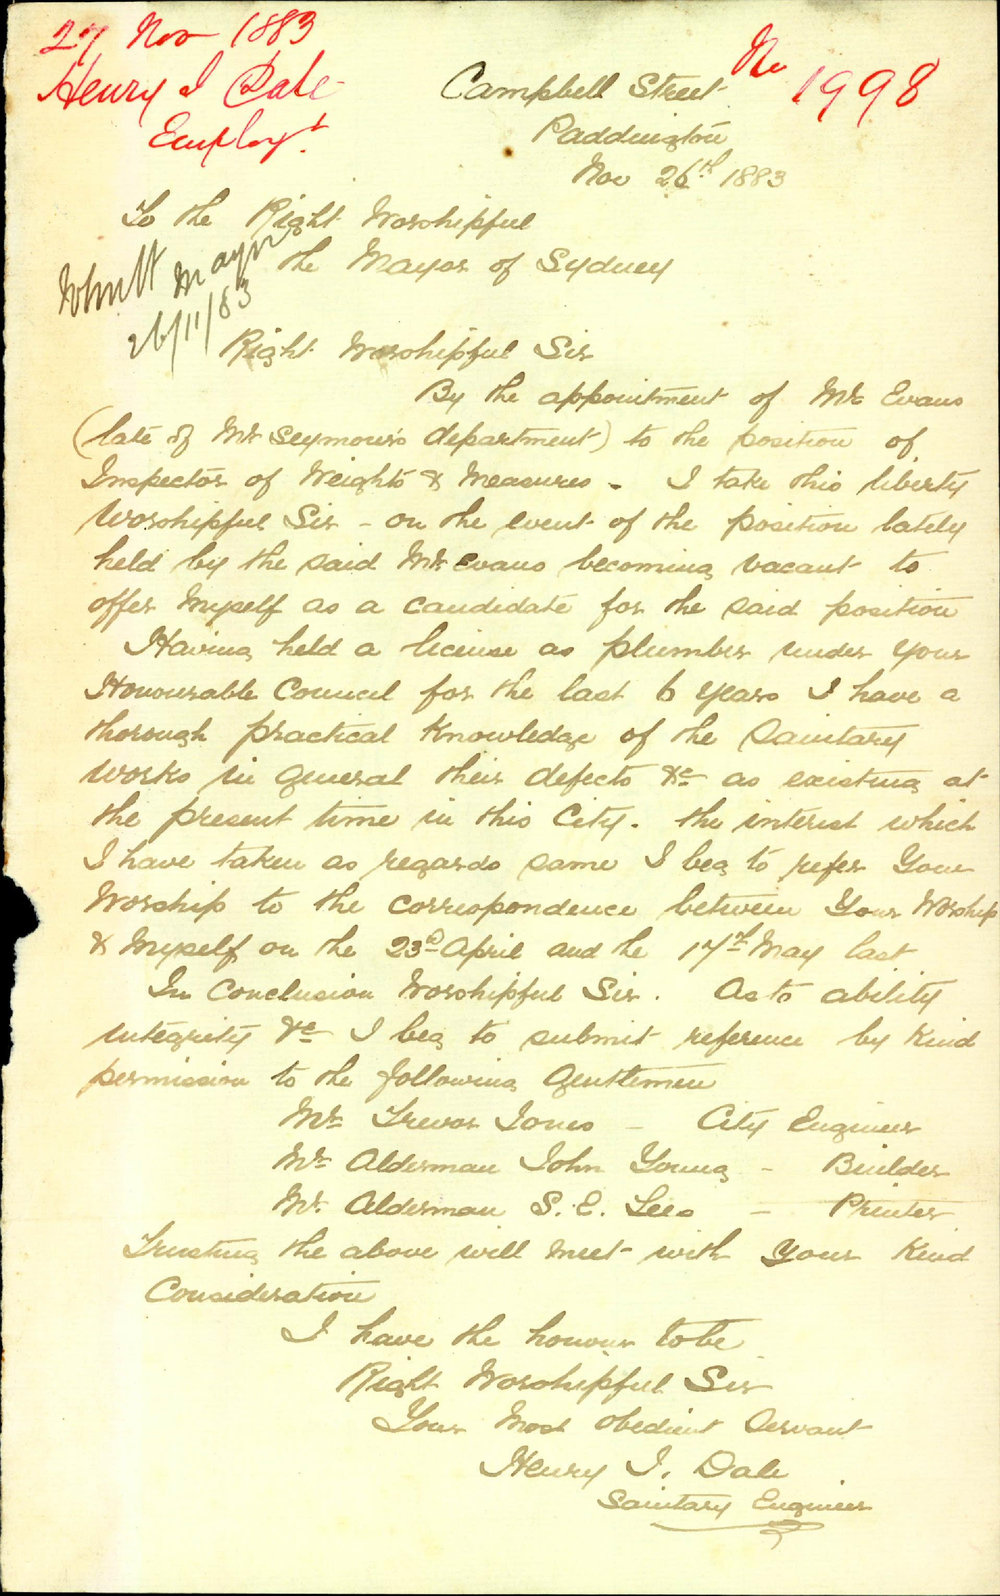 27 Nov 1883
Henry I Dale
Employt.
No 1998
Campbell Street
Paddington
Nov 26th 1883
To the Right Worshipful
the Mayor of Sydney
Mayor
26/11/83
Right Worshipful Sir
By the appointment of Mr Evans
(late of Mr Seymour's department) to the position of
Inspector of Weights & Measures - I take this liberty
Worshipful Sir - on the event of the position lately
held by the said Mr Evans becoming vacant to
offer Myself as a candidate for the said position
Having held a license as plumber under your
Honourable Council for the last 6 years I have a
thorough practical Knowledge of the Sanitary
works in general their defects &c as existing at
the present time in this City. the interest which
I have taken as regards same I beg to refer Your
Worship to the correspondence between Your Worship
& Myself on the 23d April and the 17th May last
In Conclusion Worshipful Sir. As to ability
integrity &c I beg to submit reference by Kind
permission to the following Gentlemen
Mr Trevor Jones - City Engineer
Mr Alderman John Young - Builder
Mr Alderman S. E. Lees - Printer
Trusting the above will meet with Your Kind
Consideration
I have the honour to be
Right Worshipful Sir
Your Most obedient Servant
Henry I. Dale
Sanitary Engineer